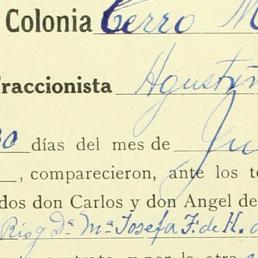 Colonia Cerro M
raccionista Agustín
30 días del mes de Ju
, comparecieron, ante los te
dos don Carlos y don Angel de
Rio y Dª Mª Josefa F. de H. d